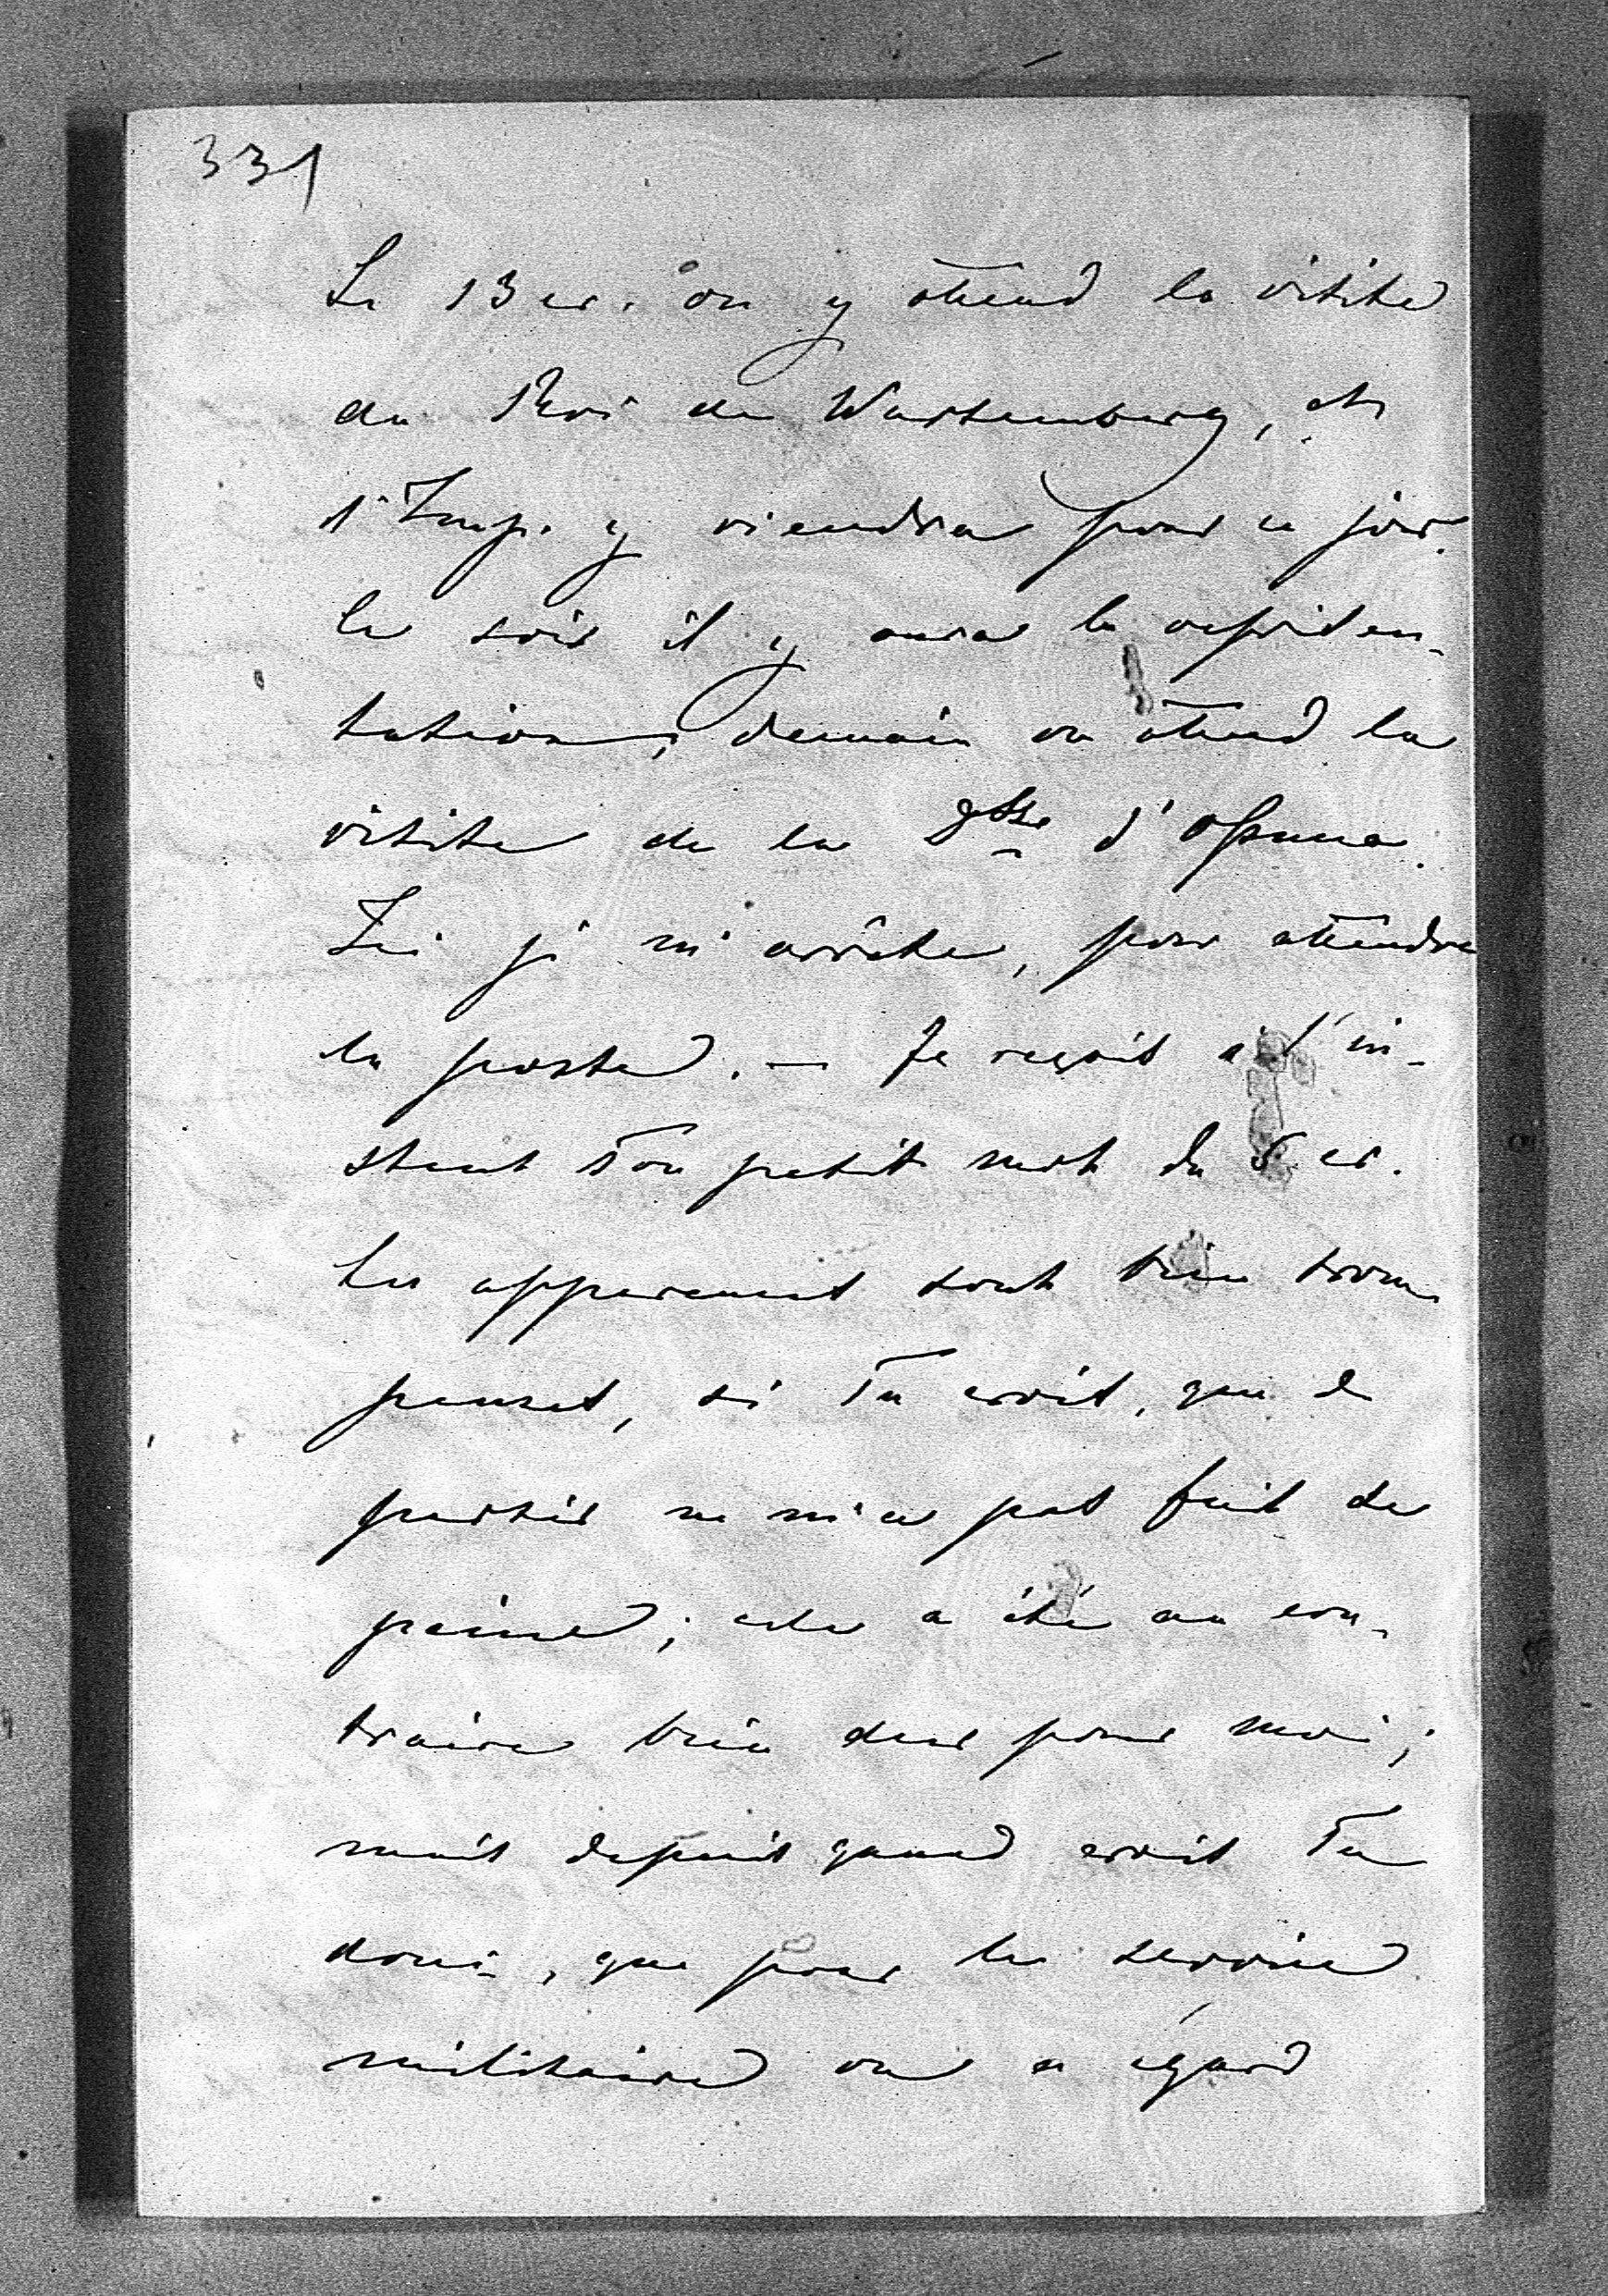 331
Le 13 cr. on y attend la visite
du Roi de Wurtemberg, et
l'Emp. y viendra pour ce jour.
Le soir il y aura la représen-
tation, demain on attend la
visite de la Dsse d'Ossuna.
Ici je m'arrête, pour attendre
la poste. — Je reçois à l'in-
stant Ton petit mot du 5 cr.
Les apparences sont bien trom-
peuses, si Tu crois, que de
partir ne m'a pas fait de
peine; cela a été au con-
traire bien dur pour moi;
mais depuis quand crois Tu
donc, que pour le service
militaire on a égard